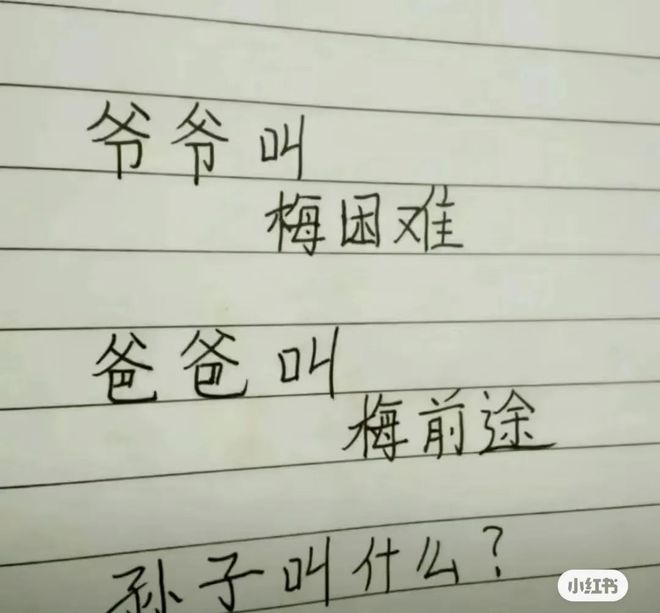 爷爷叫
梅困难
爸爸叫
梅前途
孙子叫什么?
小红书